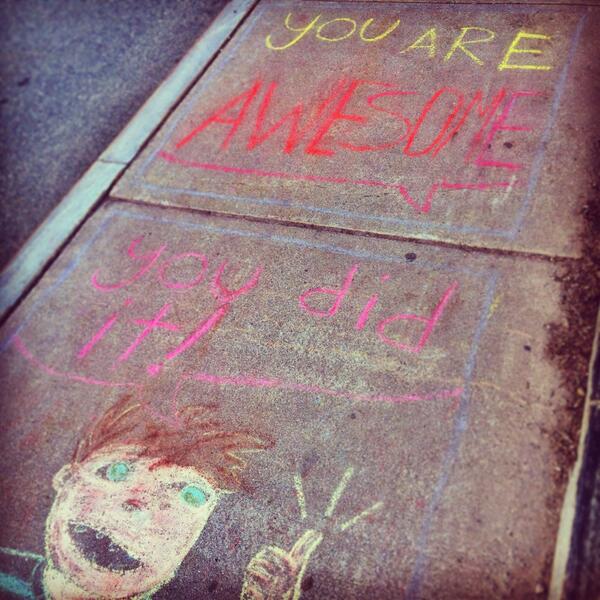 YOU ARE
AWESOME
you did
it!